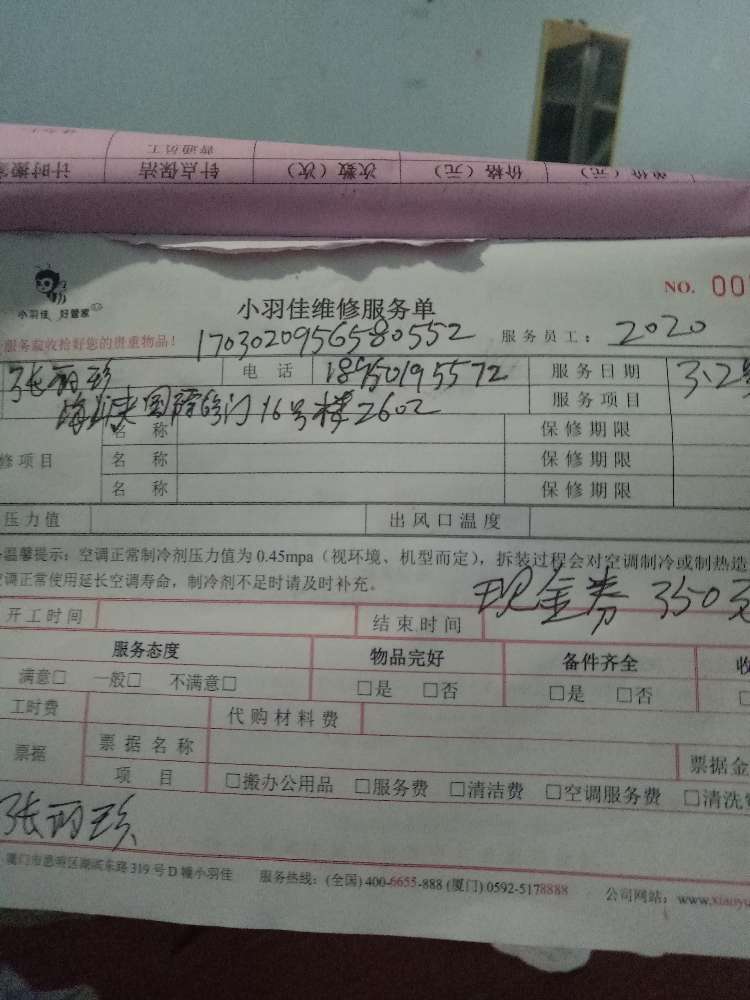 普通员工
计时搬家 针点保洁 次数（次） 价格（元） 单价（元）
小羽佳 好管家
小羽佳维修服务单
NO. 00
服务验收拾好您的贵重物品！ 1703020956580552 服务员工： 2020
张丽珍 电话 18950195572 服务日期 3.2号
国际 16号楼2602 服务项目
名称 保修期限
修项目 名称 保修期限
名称 保修期限
压力值 出风口温度
温馨提示：空调正常制冷剂压力值为 0.45mpa（视环境、机型而定），拆装过程会对空调制冷或制热造
调正常使用延长空调寿命，制冷剂不足时请及时补充。
现金券 350元
开工时间 结束时间
服务态度 物品完好 备件齐全 收
满意□ 一般□ 不满意□ □是 □否 □是 □否
工时费 代购材料费
票据 票据名称 票据金
项目 □搬办公用品 □服务费 □清洁费 □空调服务费 □清洗
张丽珍
厦门市思明区湖滨东路 319 号 D 幢小羽佳 服务热线：(全国) 400-6655-888 (厦门) 0592-5178888 公司网站：www.xiaoyu